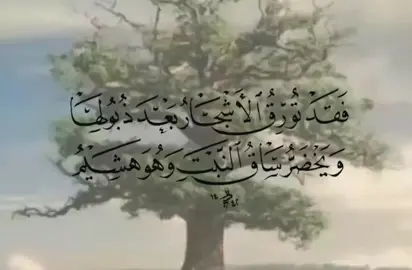 فَقَدْ تُورِقُ الْأَشْجَارُ بَعْدَ ذُبُولِهَا
وَيَخْضَرُّ سَاقُ النَّبْتِ وَهُوَ هَشِيمُ